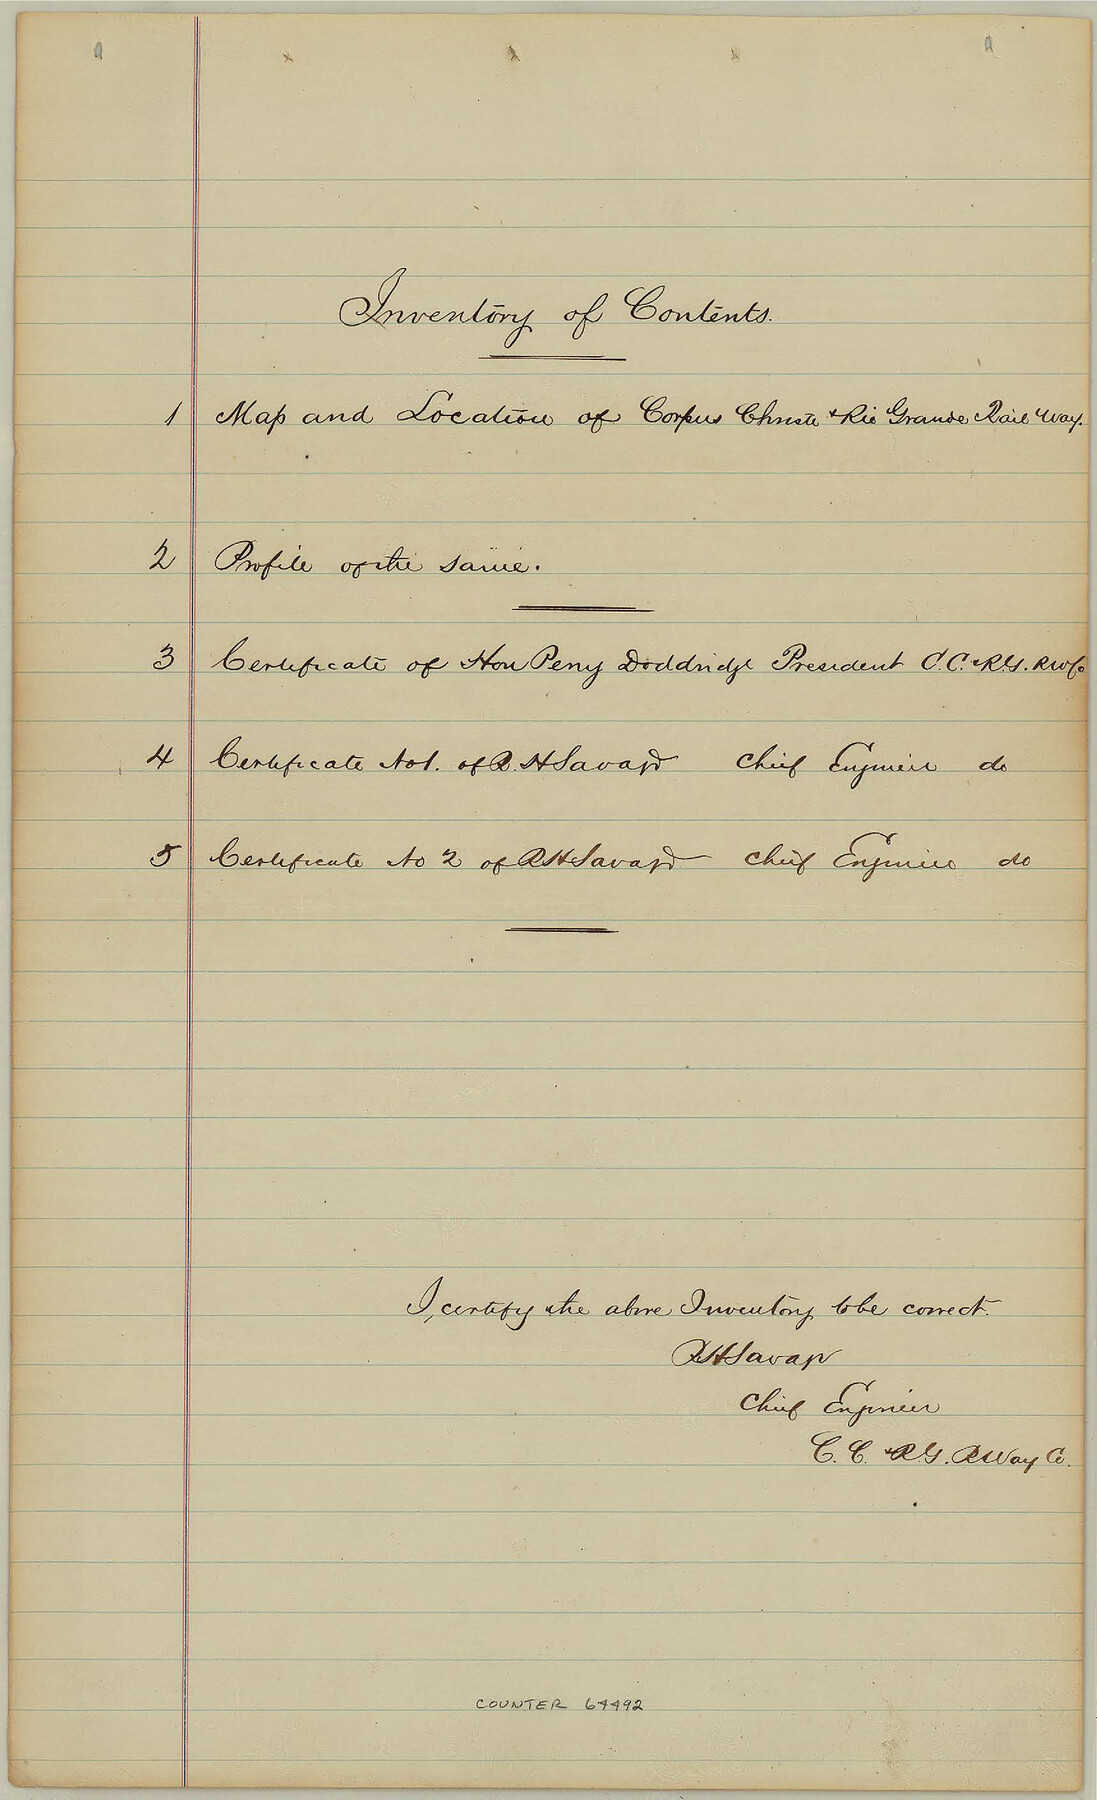 Inventory of Contents.
1 Map and Location of Corpus Christi & Rio Grande Rail Way.
2 Profile of the same.
3 Certificate of Hon Perry Doddridge President C.C. & R.G. RW Co
4 Certificate No 1. of R. H Savage Chief Engineer do
5 Certificate No 2 of R H Savage Chief Engineer do
I, certify the above Inventory to be correct.
R H Savage
Chief Engineer
C. C. & R. G. R Way Co.
COUNTER 64492